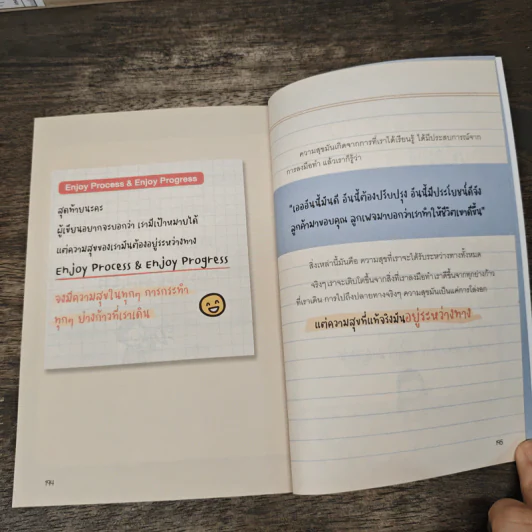 Enjoy Process & Enjoy Progress
สุดท้ายนะคะ
ผู้เขียนอยากจะบอกว่า เรามีเป้าหมายได้
แต่ความสุขของเรามันต้องอยู่ระหว่างทาง
Enjoy Process & Enjoy Progress
จงมีความสุขในทุกๆ การกระทำ
ทุกๆ ย่างก้าวที่เราเดิน
ความสุขมันเกิดจากการที่เราได้เรียนรู้ ได้มีประสบการณ์จาก
การลงมือทำ แล้วเราก็รู้ว่า
"เอออันนี้มันดี อันนี้ต้องปรับปรุง อันนี้มีประโยชน์ดีจัง
ลูกค้ามาขอบคุณ ลูกเพจมาบอกว่าเราทำให้ชีวิตเขาดีขึ้น"
สิ่งเหล่านี้มันคือ ความสุขที่เราจะได้รับระหว่างทางทั้งหมด
จริงๆ เราจะเติบโตขึ้นจากสิ่งที่เราลงมือทำ เราดีขึ้นจากทุกย่างก้าว
ที่เราเดิน การไปถึงปลายทางจริงๆ ความสุขมันเป็นแค่การโล่งอก
แต่ความสุขที่แท้จริงมันอยู่ระหว่างทาง